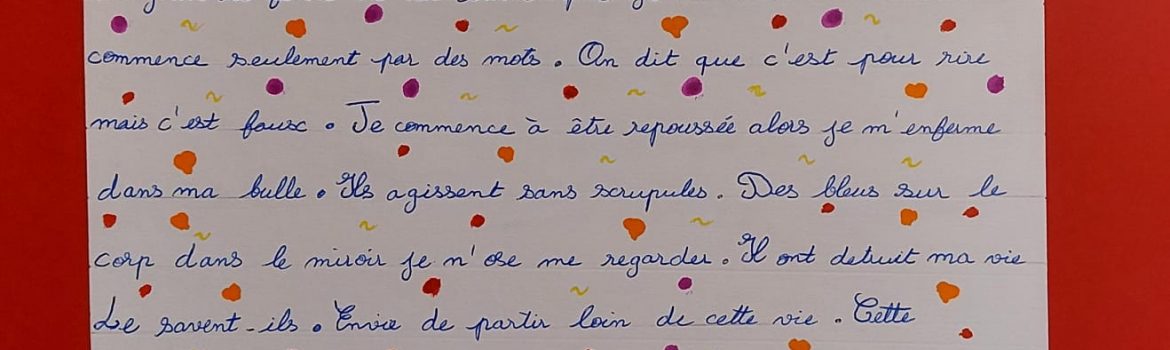 commence seulement par des mots. On dit que c'est pour rire
mais c'est faux. Je commence à être repoussée alors je m'enferme
dans ma bulle. Ils agissent sans scrupules. Des bleus sur le
corp dans le miroir je n'ose me regarder. Il ont detruit ma vie
Le savent-ils. Envie de partir loin de cette vie. Cette